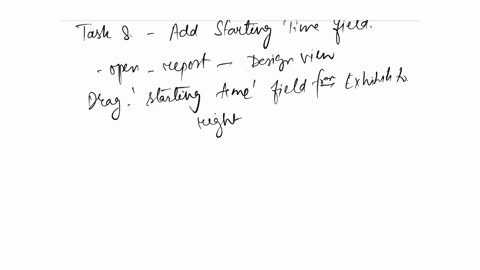 Task 8. - Add Starting Time field.
- open - report - Design view
Drag 'starting time' field from Exhibish to
right